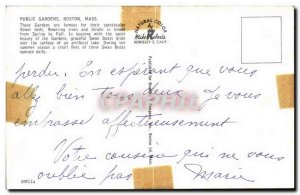 PUBLIC GARDENS, BOSTON, MASS.
These Gardens are famous for their spectacular
flower beds, flowering trees and shrubs in bloom
from Spring to Fall. In keeping with the quiet
beauty of the Gardens, graceful Swan Boats glide
over the surface of an artificial lake. During the
summer season a small fleet of these Swan Boats
operate daily.
NATURAL COLOR
Mike Roberts
BERKELEY 2, CALIF.
perdu. En espérant que vous
allez bien tous deux. Je vous
embrasse affectueusement
Votre cousine qui ne vous
oublie pas Marie